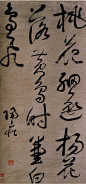 桃花細逐楊花
落黃鳥時兼白
鳥飛